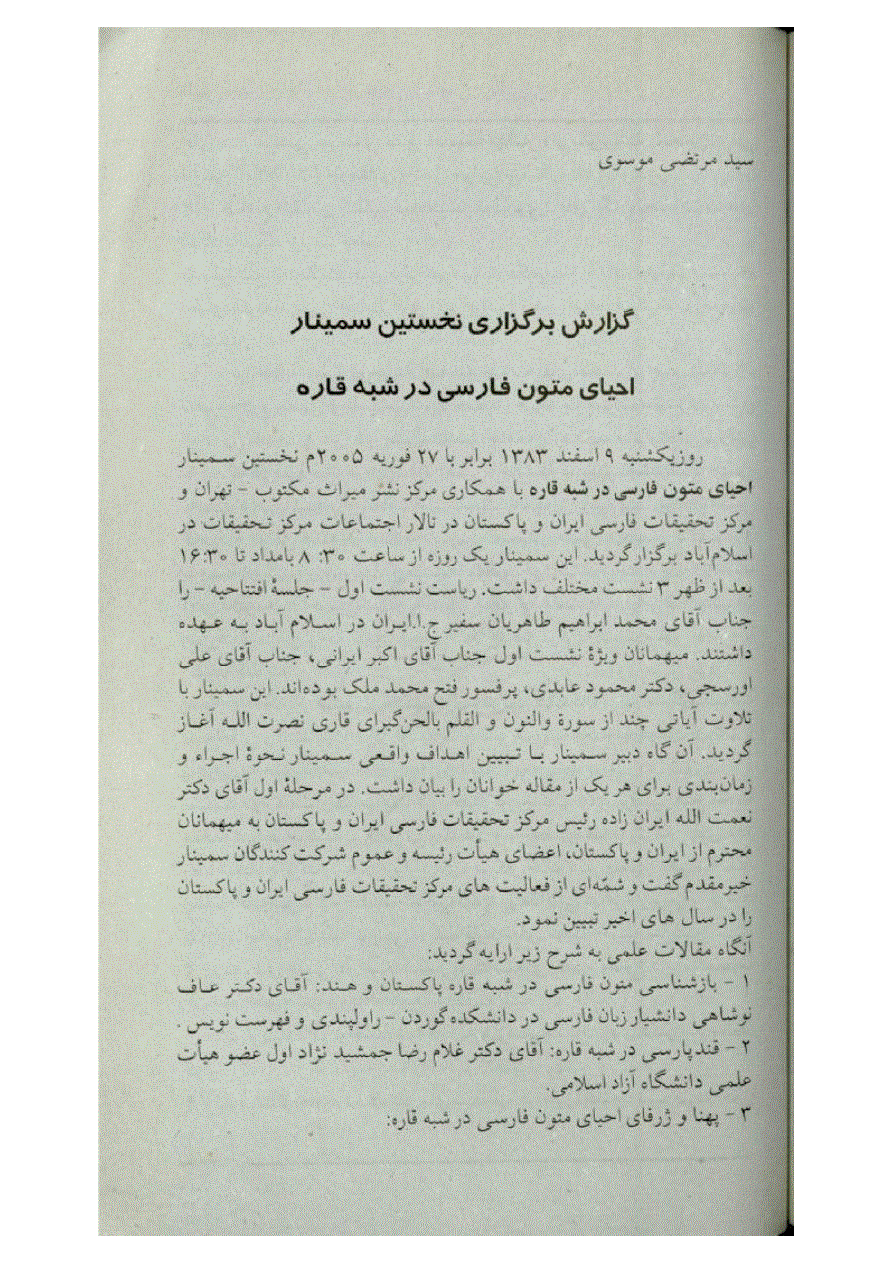 سید مرتضی موسوی
گزارش برگزاری نخستین سمینار
احیای متون فارسی در شبه قاره
روزیکشنبه ۹ اسفند ۱۳۸۳ برابر با ۲۷ فوریه ۲۰۰۵م نخستین سمینار
احیای متون فارسی در شبه قاره با همکاری مرکز نشر میراث مکتوب - تهران و
مرکز تحقیقات فارسی ایران و پاکستان در تالار اجتماعات مرکز تحقیقات در
اسلام‌آباد برگزار گردید. این سمینار یک روزه از ساعت ۳۰: ۸ بامداد تا ۱۶:۳۰
بعد از ظهر ۳ نشست مختلف داشت. ریاست نشست اول - جلسهٔ افتتاحیه - را
جناب آقای محمد ابراهیم طاهریان سفیر ج.ا.ایران در اسلام آباد به عهده
داشتند. میهمانان ویژهٔ نشست اول جناب آقای اکبر ایرانی، جناب آقای علی
اورسجی، دکتر محمود عابدی، پرفسور فتح محمد ملک بوده‌اند. این سمینار با
تلاوت آیاتی چند از سورهٔ والنون و القلم بالحن‌گیرای قاری نصرت الله آغاز
گردید. آن گاه دبیر سمینار با تبیین اهداف واقعی سمینار نحوهٔ اجراء و
زمان‌بندی برای هر یک از مقاله خوانان را بیان داشت. در مرحلهٔ اول آقای دکتر
نعمت الله ایران زاده رئیس مرکز تحقیقات فارسی ایران و پاکستان به میهمانان
محترم از ایران و پاکستان، اعضای هیأت رئیسه و عموم شرکت کنندگان سمینار
خیرمقدم گفت و شمّه‌ای از فعالیت های مرکز تحقیقات فارسی ایران و پاکستان
را در سال های اخیر تبیین نمود.
آنگاه مقالات علمی به شرح زیر ارایه گردید:
۱ - بازشناسی متون فارسی در شبه قاره پاکستان و هند: آقای دکتر عاف
نوشاهی دانشیار زبان فارسی در دانشکده گوردن - راولپندی و فهرست نویس .
۲ - قندپارسی در شبه قاره: آقای دکتر غلام رضا جمشید نژاد اول عضو هیأت
علمی دانشگاه آزاد اسلامی.
۳ - پهنا و ژرفای احیای متون فارسی در شبه قاره: